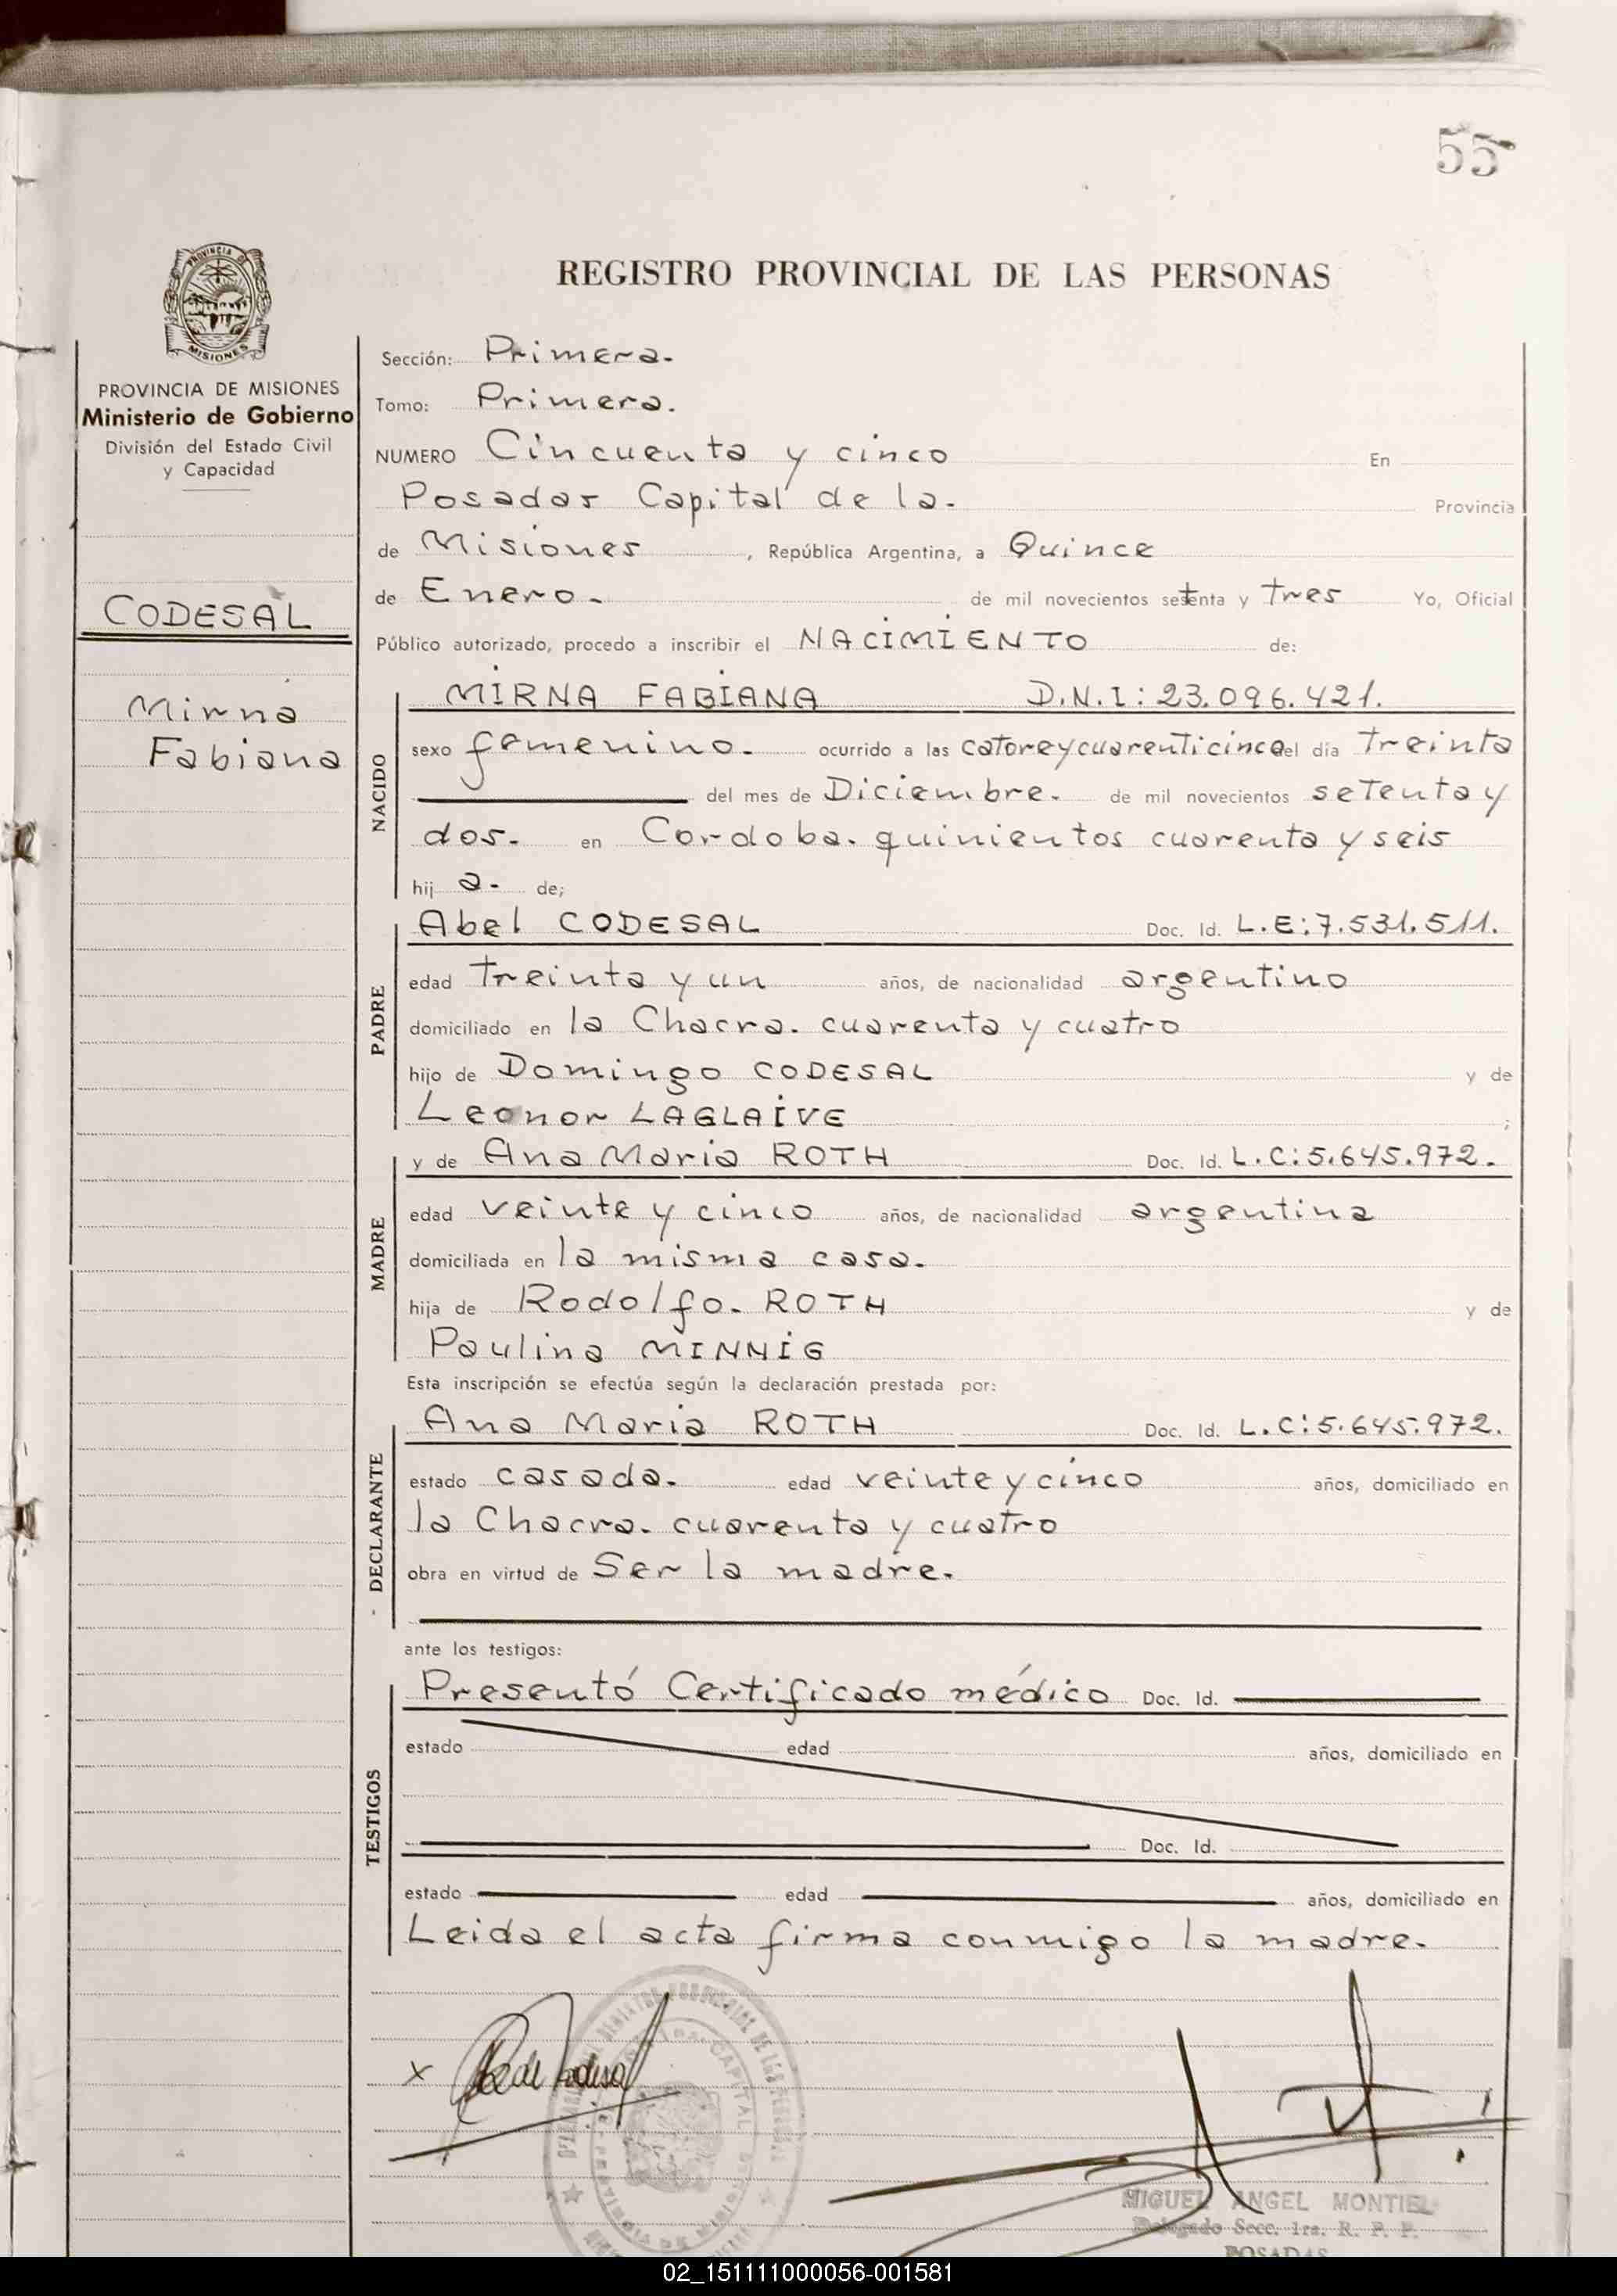 55
REGISTRO PROVINCIAL DE LAS PERSONAS
PROVINCIA DE
MISIONES
PROVINCIA DE MISIONES
Ministerio de Gobierno
División del Estado Civil
y Capacidad
CODESAL
Mirna
Fabiana
Sección: Primera.
Tomo: Primero.
NUMERO Cincuenta y cinco En
Posadas Capital de la. Provincia
de Misiones, República Argentina, a Quince
de Enero. de mil novecientos setenta y tres Yo, Oficial
Público autorizado, procedo a inscribir el NACIMIENTO de:
NACIDO
MIRNA FABIANA D.N.I: 23.096.421.
sexo femenino. ocurrido a las catorceycuarenticinco del día treinta
del mes de Diciembre. de mil novecientos setenta y
dos. en Cordoba. quinientos cuarenta y seis
hij a. de;
PADRE
Abel CODESAL Doc. Id. L.E: 7.531.511.
edad treinta y un años, de nacionalidad argentino
domiciliado en la Chacra. cuarenta y cuatro
hijo de Domingo CODESAL y de
Leonor LAGLAIVE ;
MADRE
y de Ana Maria ROTH Doc. Id. L.C: 5.645.972.
edad veinte y cinco años, de nacionalidad argentina
domiciliada en la misma casa.
hija de Rodolfo. ROTH y de
Paulina MINNIG
Esta inscripción se efectúa según la declaración prestada por:
DECLARANTE
Ana Maria ROTH Doc. Id. L.C: 5.645.972.
estado casada. edad veinte y cinco años, domiciliado en
la Chacra. cuarenta y cuatro
obra en virtud de Ser la madre.
ante los testigos:
TESTIGOS
Presentó Certificado médico Doc. Id.
estado edad años, domiciliado en
Doc. Id.
estado edad años, domiciliado en
Leida el acta firma conmigo la madre.
x
MIGUEL ANGEL MONTIEL
Delegado Secc. 1ra. R. P. P.
POSADAS
02_151111000056-001581